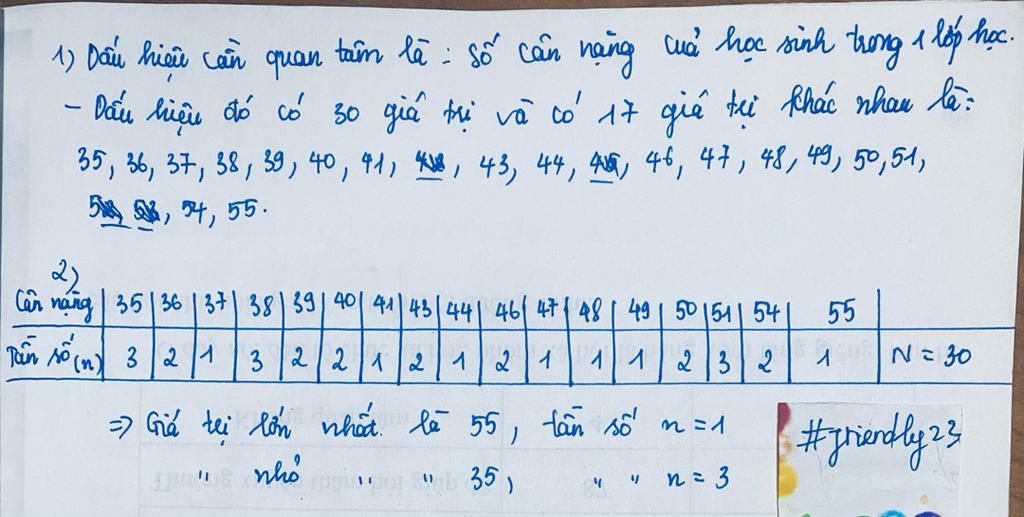 1) Dấu hiệu cần quan tâm là : số cân nặng cuả học sinh trong 1 lớp học.
- Dấu hiệu đó có 30 giá trị và có 17 giá trị khác nhau là:
35, 36, 37, 38, 39, 40, 41, 43, 44, 46, 47, 48, 49, 50, 51,
54, 55.
2)
Cân nặng 35 36 37 38 39 40 41 43 44 46 47 48 49 50 51 54 55
Tần số (n) 3 2 1 3 2 2 1 2 1 2 1 1 1 2 3 2 1 N = 30
=> Giá trị lớn nhất là 55, tần số n = 1
" nhỏ " " 35, " " n = 3
#friendly23